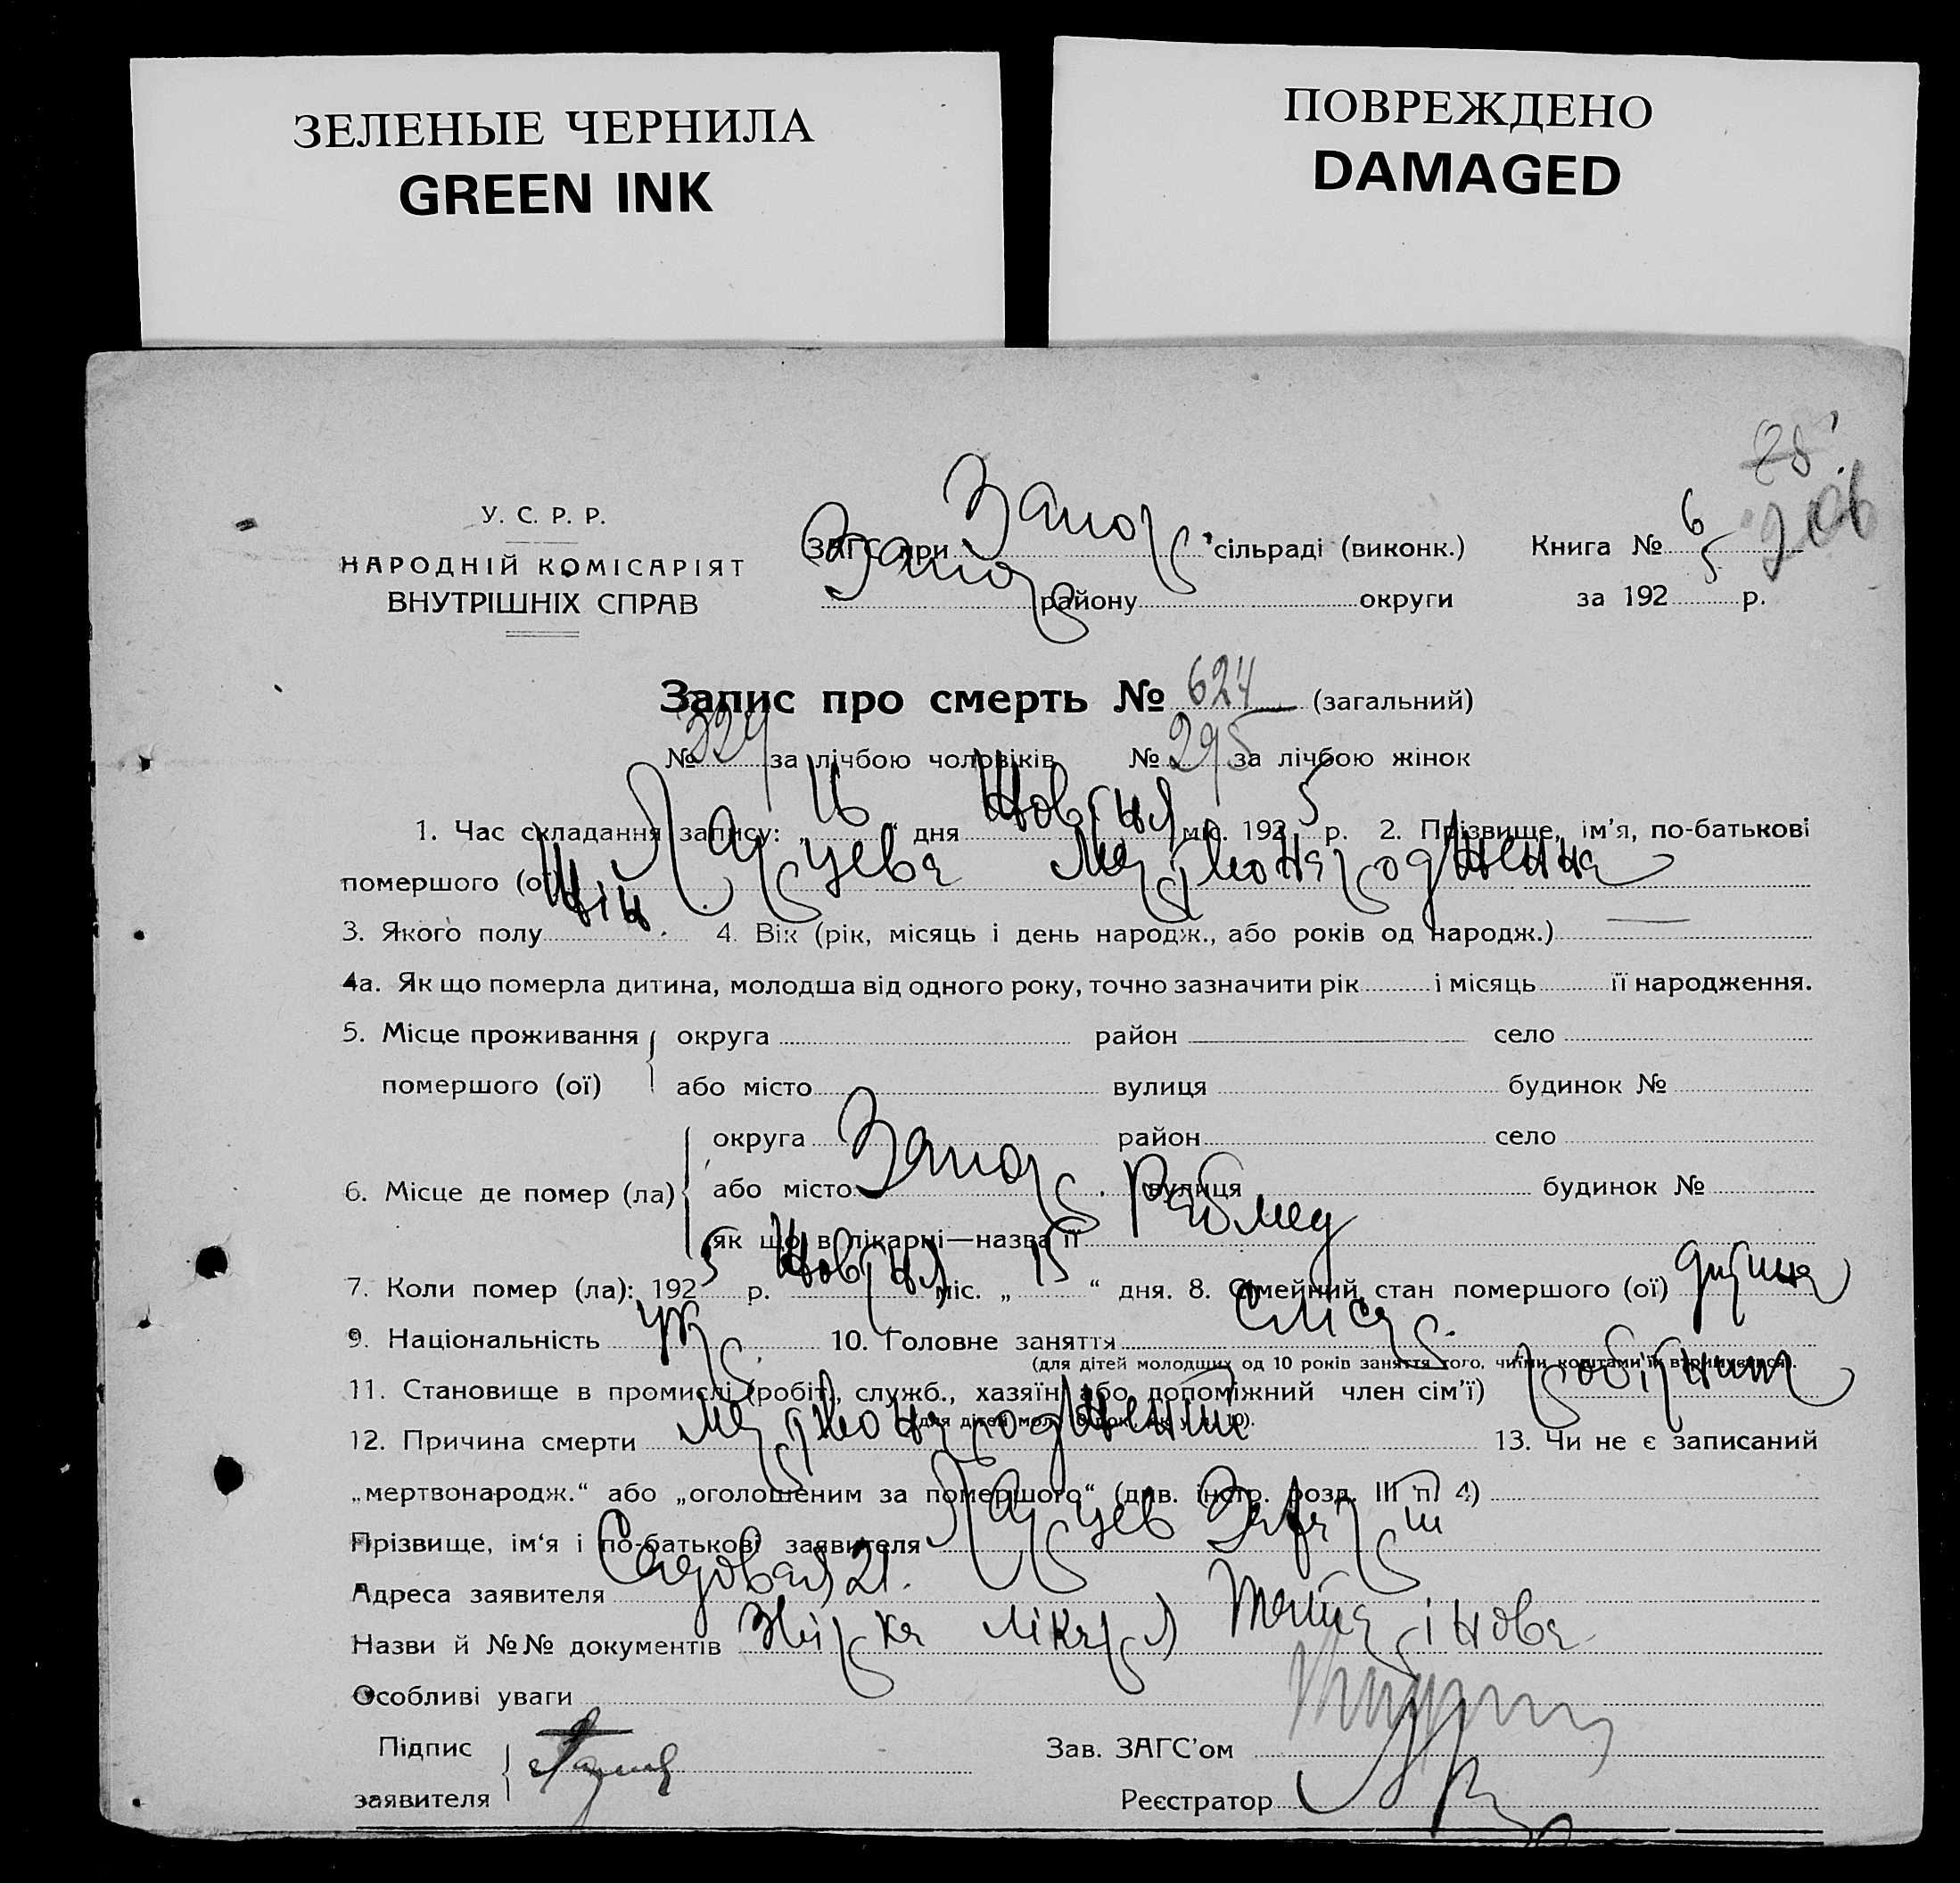 ЗЕЛЕНЫЕ ЧЕРНИЛА
GREEN INK
ПОВРЕЖДЕНО
DAMAGED
У. С. Р. Р.
НАРОДНІЙ КОМІСАРІЯТ
ВНУТРІШНІХ СПРАВ
ЗАГС при Запор сільраді (виконк.) Книга № 6
Запор району округи за 192 5 р.
Запис про смерть № 624 (загальний)
№ 329 за лічбою чоловіків № 295 за лічбою жінок
1. Час складання запису: „ 16 “ дня Жовтня міс. 192 5 р. 2. Прізвище, ім'я, по-батькові
помершого (ої) мертвонароджена
3. Якого полу Жін. 4. Вік (рік, місяць і день народж., або років од народж.) —
4а. Як що померла дитина, молодша від одного року, точно зазначити рік і місяць її народження.
5. Місце проживання округа район село
помершого (ої) або місто вулиця будинок №
округа район село
6. Місце де помер (ла) або місто Запор. вулиця будинок №
як що в лікарні—назва її Робмед
7. Коли помер (ла): 192 5 р. Жовтня міс. „ 15 “ дня. 8. Сімейний стан помершого (ої) дитина
9. Національність укр. 10. Головне заняття слісар.
(для дітей молодших од 10 років заняття того, чиїми коштами їх втримувався).
11. Становище в промислі (робіт., служб., хазяїн або допоміжний член сім'ї) робітник
12. Причина смерти мертвонароджений 13. Чи не є записаний
„мертвонародж.“ або „оголошеним за помершого“ (див. інстр. розд. III п. 4)
Прізвище, ім'я і по-батькові заявителя
Адреса заявителя Садовая 21.
Назви й №№ документів лікаря
Особливі уваги
Підпис Зав. ЗАГС'ом
заявителя Реєстратор